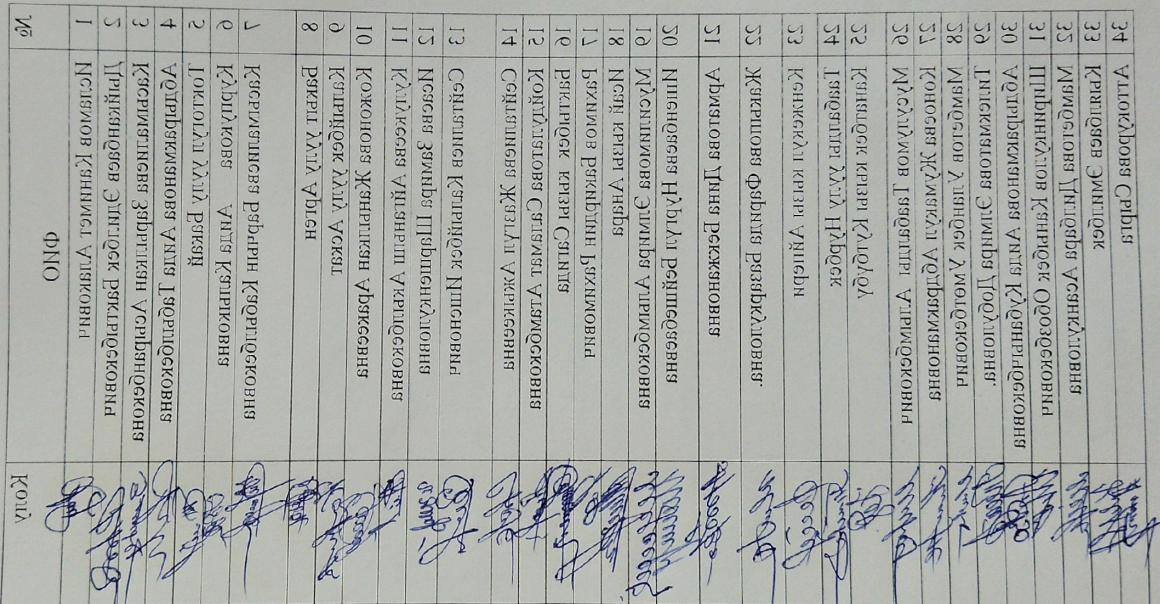 № ФИО Колу
1 Исламов Канимет Алакович
2 Дыйканбаев Эдилбек Бактыбекович
3 Касымалиева Зарылкан Асыранбекона
4 Абдыракманова Аида Табылбековна
5 Токтогул уулу Бакай
6 Курпукова Аида Капыковна
7 Касымалиева Барчын Кабылбековна
8 Бакыт уулу Артен
9 Калыйбек уулу Аскат
10 Кожонова Жаныйкан Араевна
11 Кулукеева Айганыш Акылбековна
12 Исаева Замира Шаршенкуловна
13 Сейталиев Калыйбек Ишенович
14 Сейталиева Жазгул Ажыкеевна
15 Койдулатова Саламат Атамбековна
16 Бактыбек кызы Сагида
17 Рахимов Бакирдин Рахимович
18 Исай кызы Анара
19 Муслимова Элмира Алымбековна
20 Ишенбаева Нургул Бейшебаевна
21 Арматова Дина Бекжановна
22 Жакыпова Фарида Базаркуловна
23 Кенжекул кызы Айпери
24 Таабалды уулу Нурбек
25 Каныбек кызы Кулбубу
26 Мусулумов Таабалды Алымбекович
27 Коноева Жумакул Абдракмановна
28 Мамбетов Уланбек Умотбекович
29 Тилекматова Элмира Добуловна
30 Абдыракманова Аида Кубанычбековна
31 Ширинкулов Каныбек Обозбекович
32 Мамбетова Дилбара Асанкуловна
33 Крыкбаев Эмилбек
34 Аттокурова Сырга